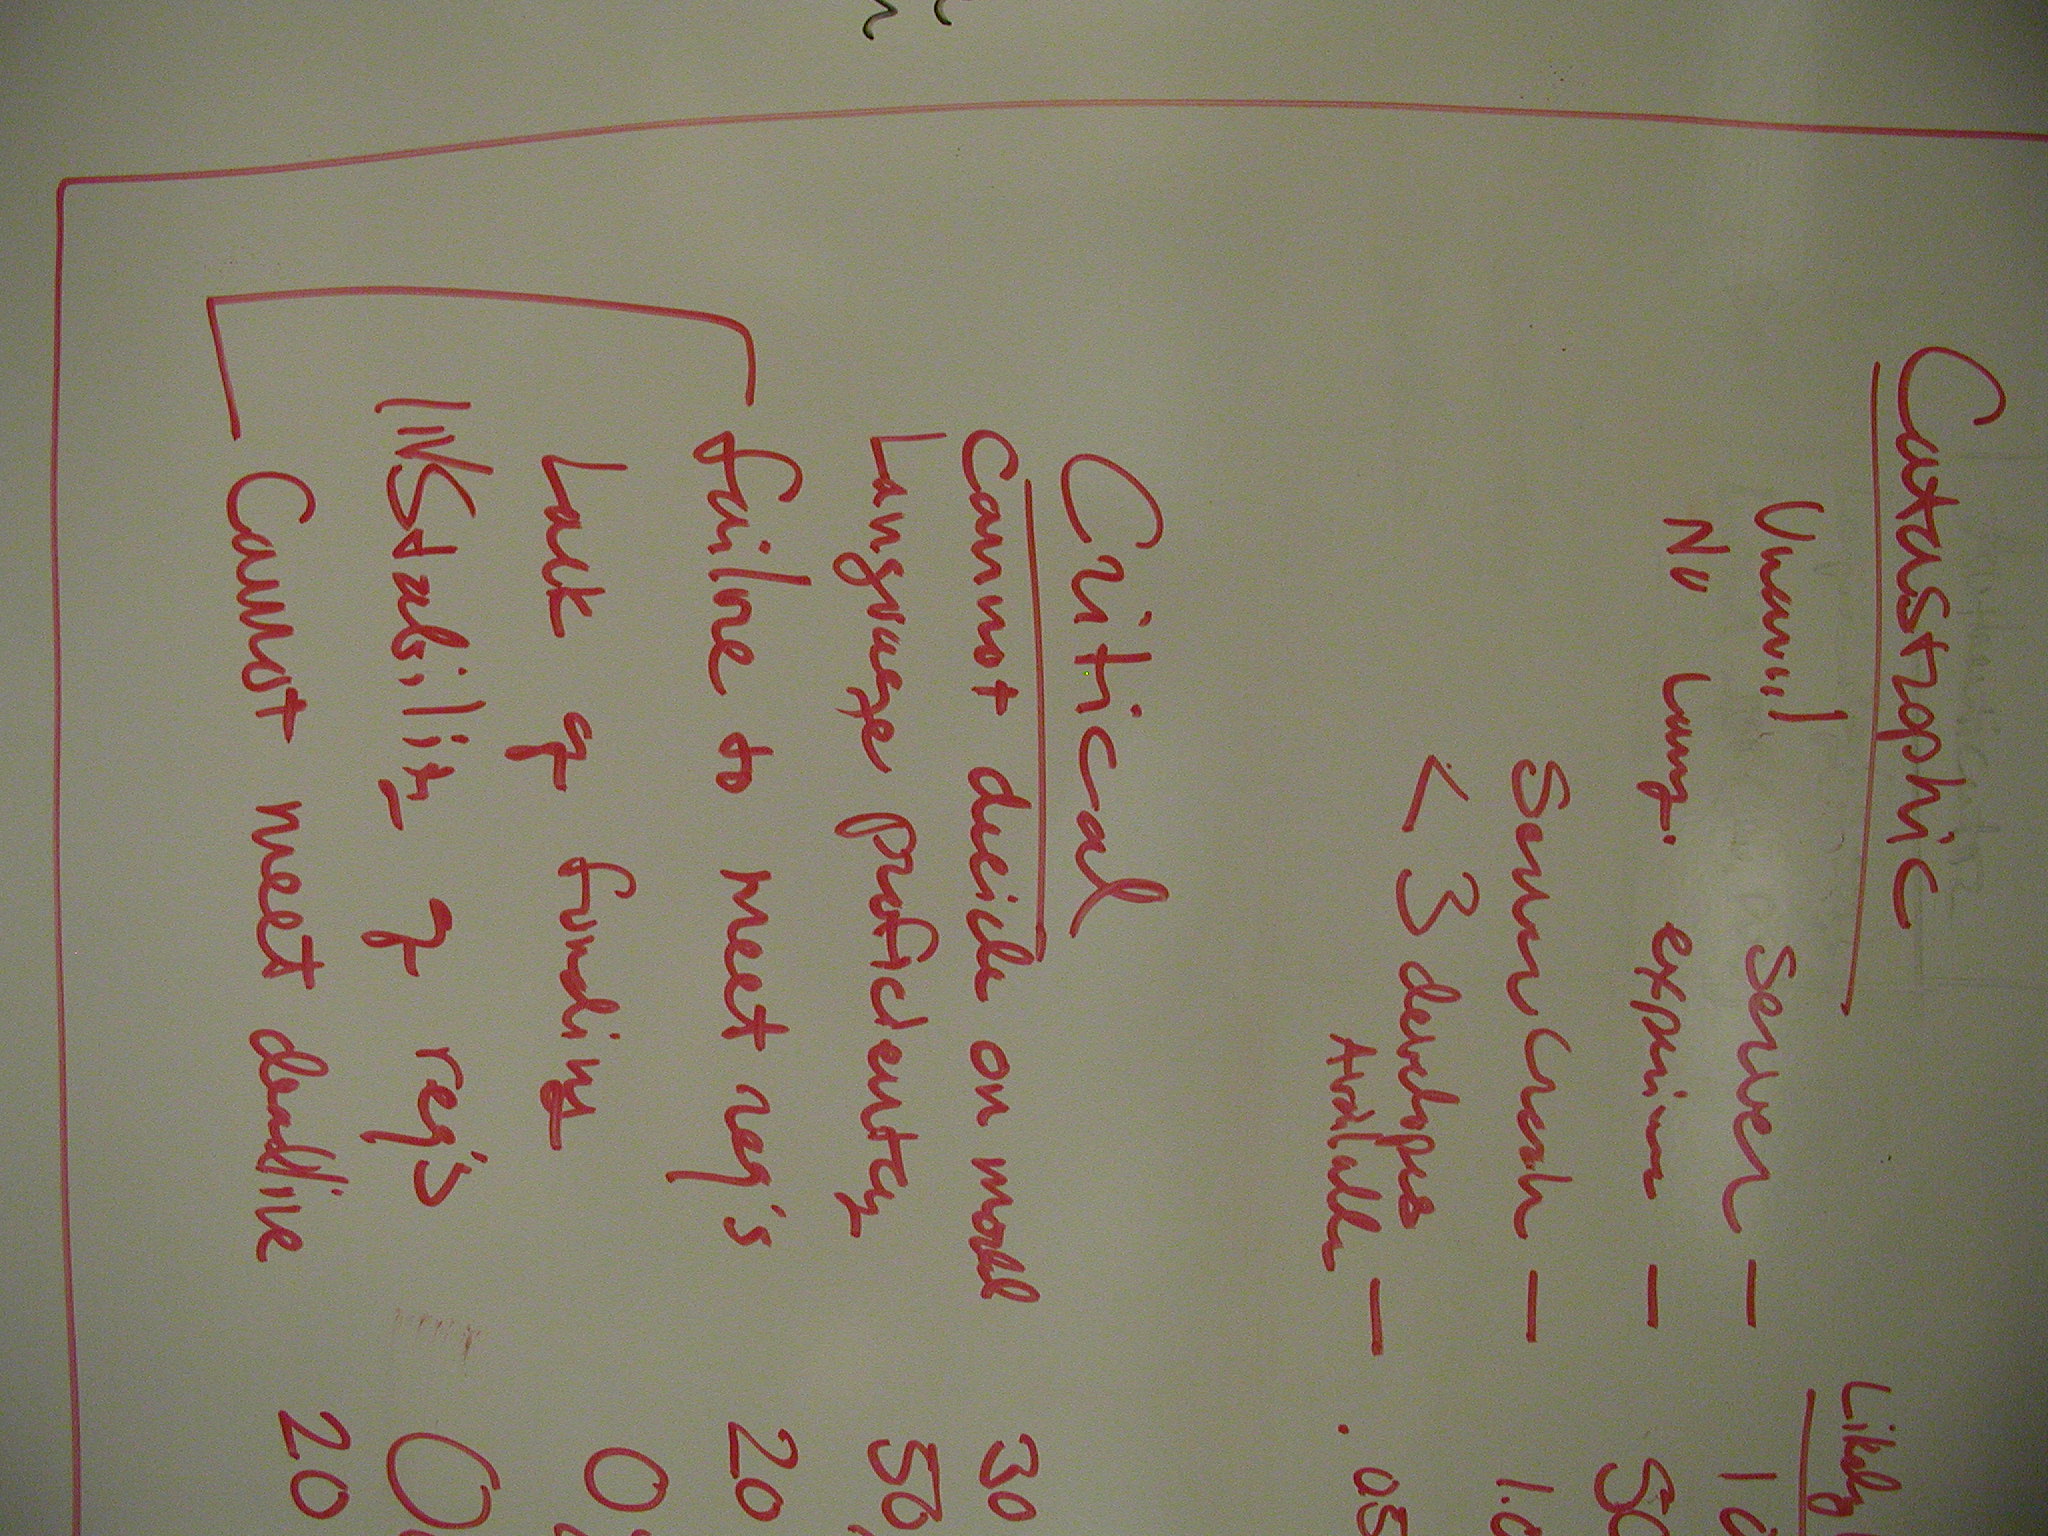 Catastrophic
Likely
Server — 10
No Lang. experience — 50
Server Crash — 1.0
< 3 developers
Available — .05
Critical
Cannot decide on model 30
Language proficientcy 50
failure to meet req's 20
Lack of funding 0
INStability of req's 0
Cannot meet deadline 20